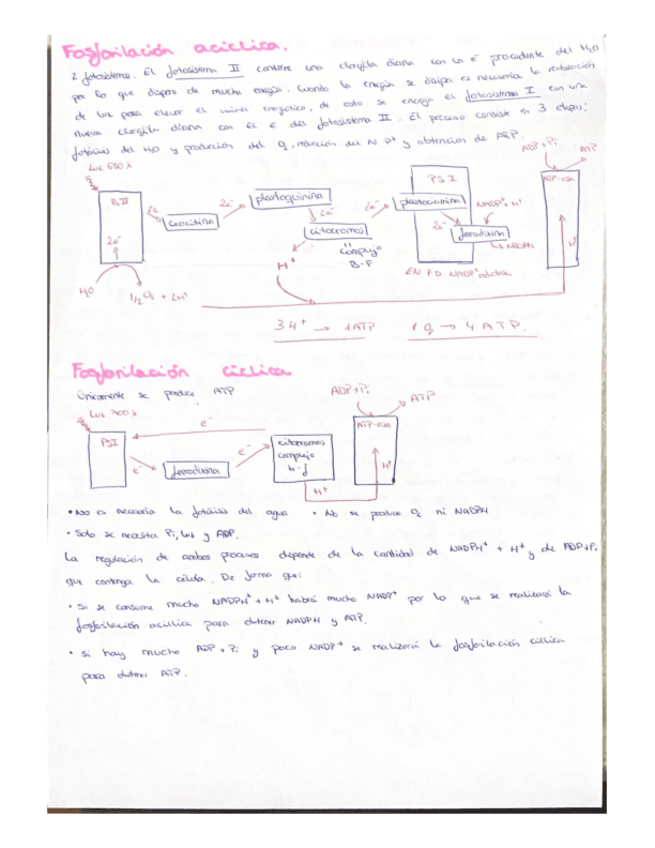 Fosforilación acíclica.
2 fotosistema. El fotosistema II contiene una clorofila diana con un e⁻ procedente del H₂O
por lo que dispone de mucha energía. Cuando la energía se disipa es necesaria la
de luz para elevar el nivel energético, de esto se encarga el fotosistema I con una
nueva clorofila diana con el e⁻ del fotosistema II. El proceso consiste en 3 etapas:
fotólisis del H₂O y producción del O₂, reducción del NADP⁺ y obtención de ATP.
Luz 680 λ
ADP + Pi
ATP
PSII
2e⁻
2e⁻
plastoquinina
2e⁻
PSI
plastocianina
NADP⁺ + H⁺
ATP-asa
2e⁻
citocromos
2e⁻
ferredoxina
NADPH
H⁺
2e⁻
complejo
B-F
H⁺
EN FD NADP⁺
H₂O
1/2 O₂ + 2H⁺
3H⁺ → 1ATP
1 O₂ → 4 ATP.
Fosforilación cíclica
Únicamente se produce ATP
Luz 700 λ
ADP + Pi
ATP
PSI
e⁻
e⁻
ferredoxina
e⁻
citocromos
complejo
b-f
ATP-asa
H⁺
H⁺
• No es necesaria la fotólisis del agua
• No se produce O₂ ni NADPH
• Solo se necesita Pi, luz y ADP.
La regulación de ambos procesos depende de la cantidad de NADPH⁺ + H⁺ y de ADP+Pi
que contenga la célula. De forma que:
• Si se consume mucho NADPH⁺ + H⁺ habrá mucho NADP⁺ por lo que se realizará la
fosforilación acíclica para obtener NADPH y ATP.
• Si hay mucho ADP + Pi y poco NADP⁺ se realizará la fosforilación cíclica
para obtener ATP.